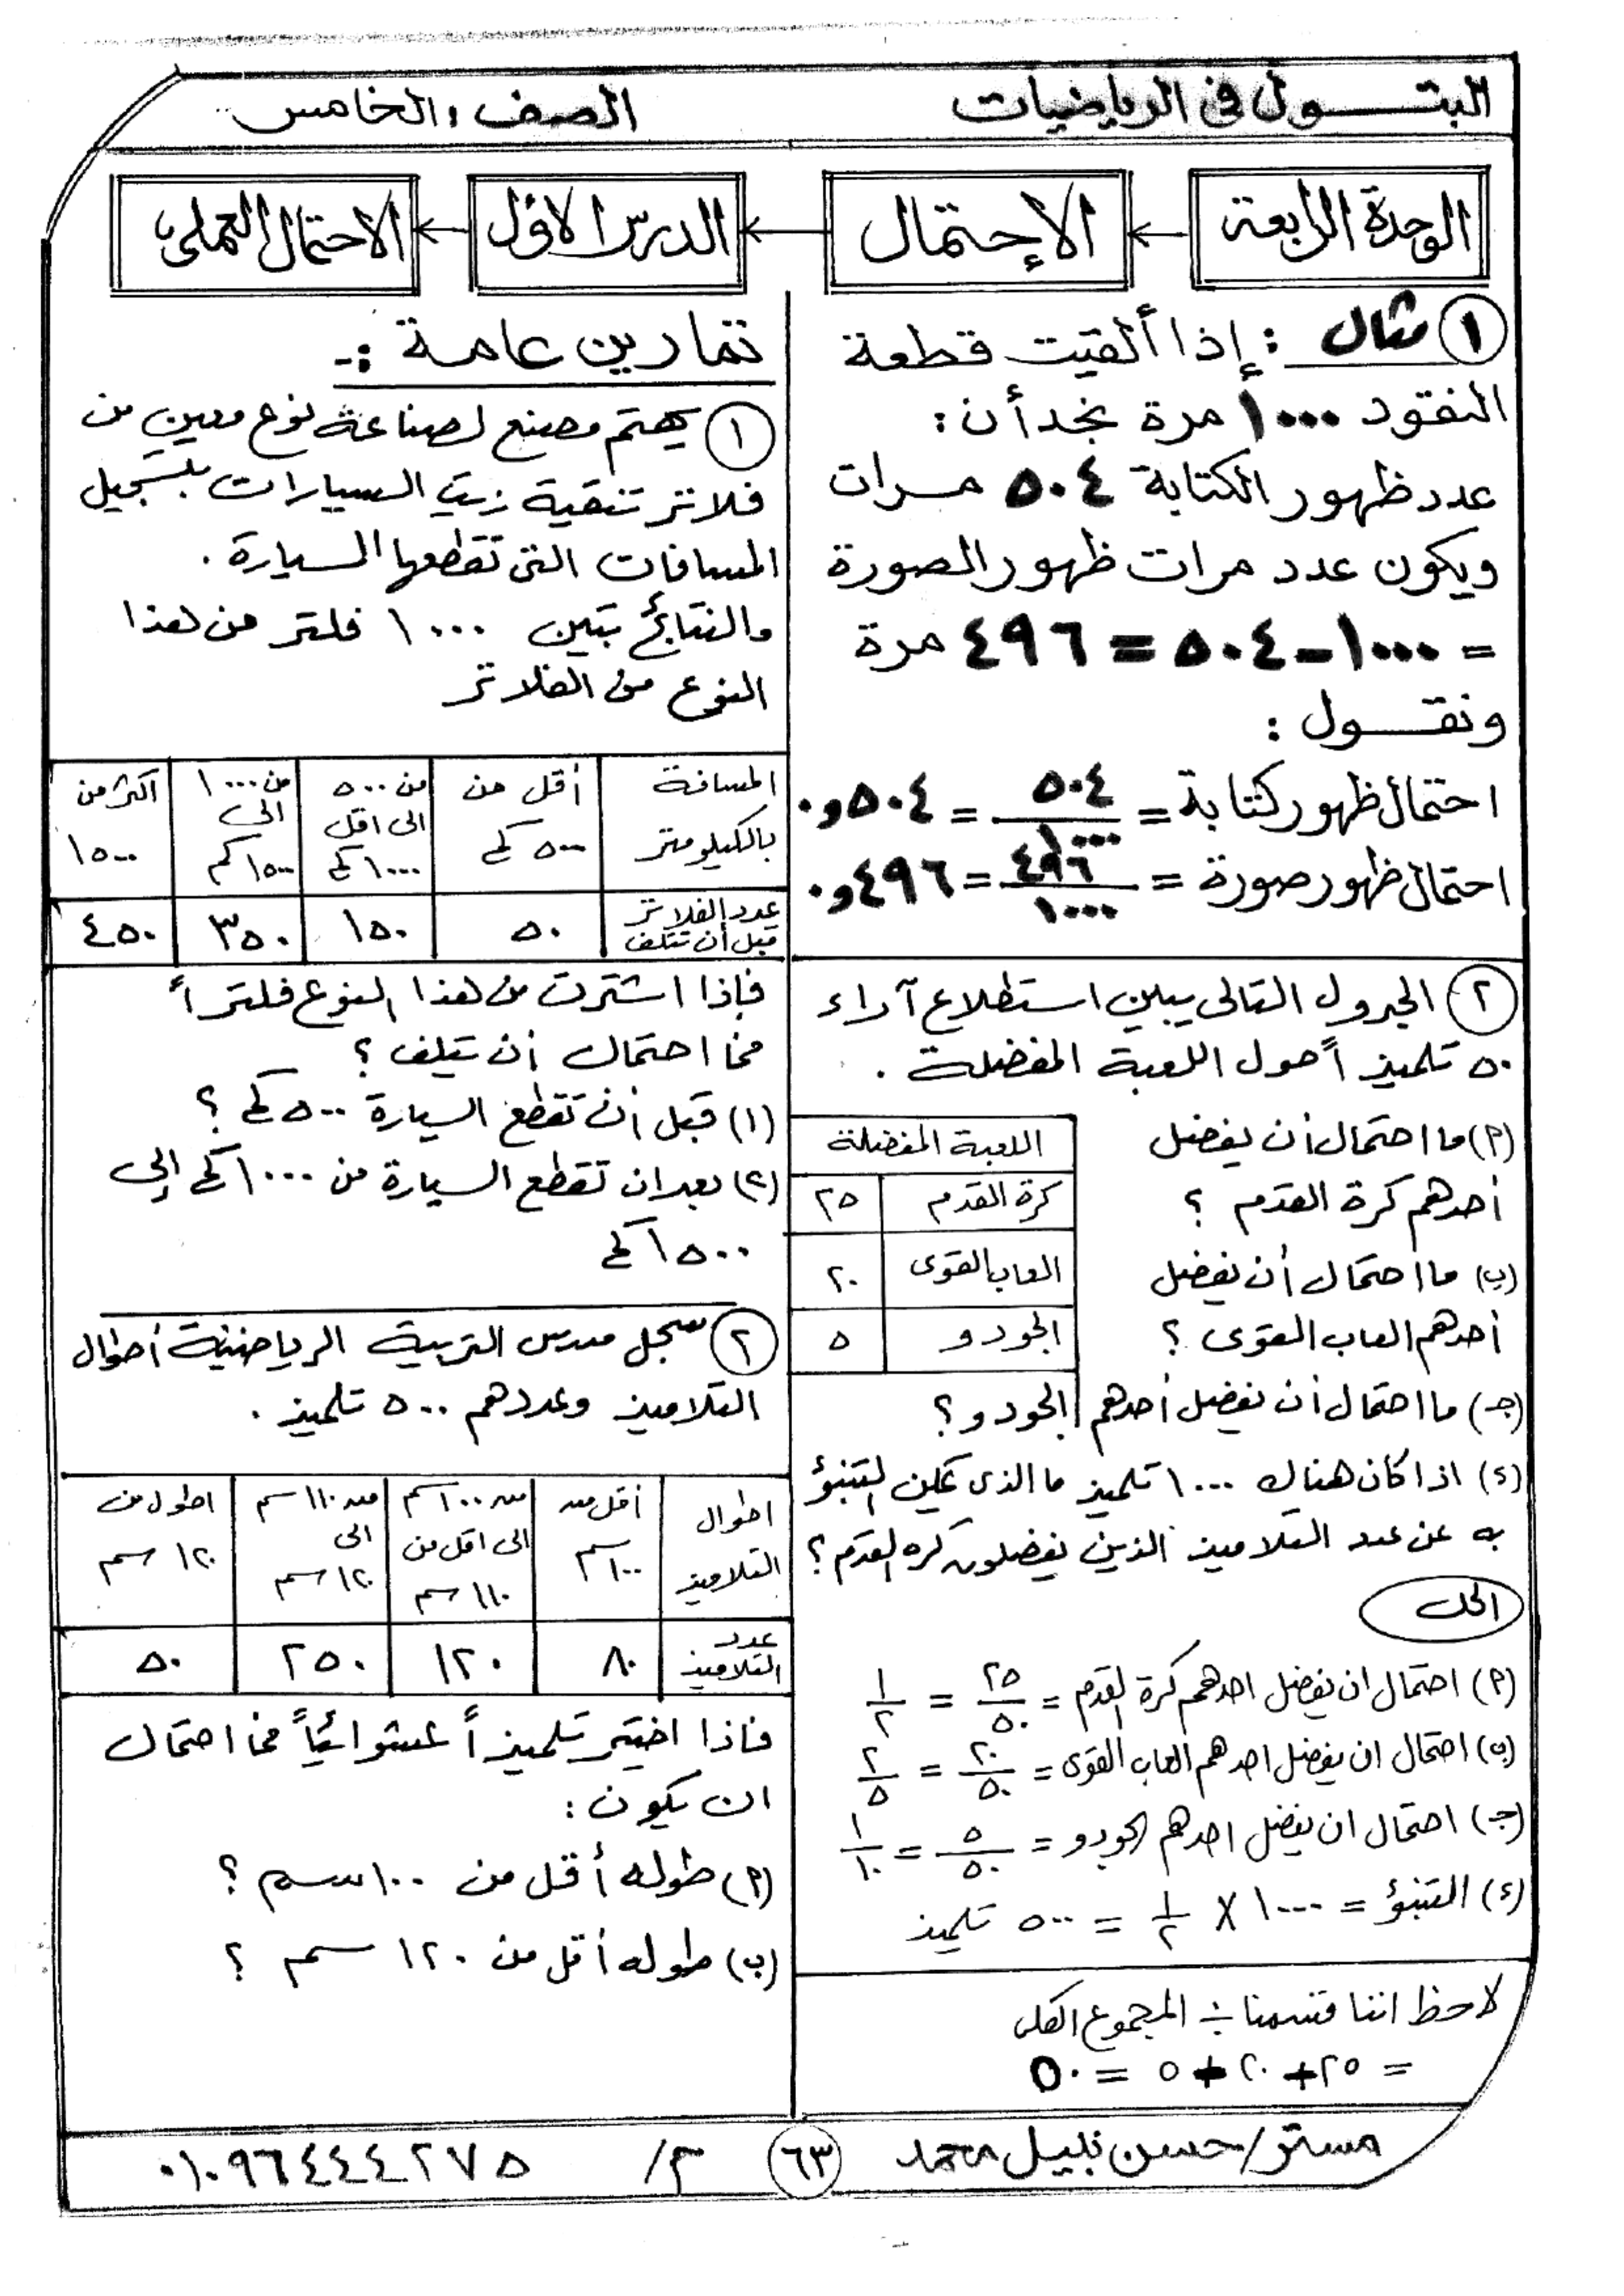 البتول في الرياضيات
الصف الخامس
الوحدة الرابعة
الإحتمال
الدرس الاول
الاحتمال العملى
١ مثال : إذا ألقيت قطعة
النقود ١٠٠٠ مرة نجد أن :
عدد ظهور الكتابة ٥٠٤ مرات
ويكون عدد مرات ظهور الصورة
= ١٠٠٠ - ٥٠٤ = ٤٩٦ مرة
ونقول :
احتمال ظهور كتابة = ٥٠٤/١٠٠٠ = ٥٠٤و٠
احتمال ظهور صورة = ٤٩٦/١٠٠٠ = ٤٩٦و٠
٢ الجدول التالى يبين استطلاع آراء
٥٠ تلميذاً حول اللعبة المفضلة .
(٢) ما احتمال أن يفضل
أحدهم كرة القدم ؟
(ب) ما احتمال أن يفضل
أحدهم العاب القوى ؟
اللعبة المفضلة
كرة القدم ٢٥
العاب القوى ٢٠
الجودو ٥
(جـ) ما احتمال أن يفضل أحدهم الجودو ؟
(د) اذا كان هناك ١٠٠٠ تلميذ ما الذى يمكن التنبؤ
به عن عدد التلاميذ الذين يفضلون كره القدم ؟
الحل
(٢) احتمال ان يفضل احدهم كرة القدم = ٢٥/٥٠ = ١/٢
(ب) احتمال ان يفضل احدهم العاب القوى = ٢٠/٥٠ = ٢/٥
(جـ) احتمال ان يفضل احدهم الجودو = ٥/٥٠ = ١/١٠
(د) التنبؤ = ١٠٠٠ × ١/٢ = ٥٠٠ تلميذ
لاحظ اننا قسمنا ÷ المجموع الكلى
= ٢٥ + ٢٠ + ٥ = ٥٠
تمارين عامة :-
١ يهتم مصنع لصناعة نوع معين من
فلاتر تنقية زيت السيارات بتسجيل
المسافات التى تقطعها السيارة .
والنتائج تبين ١٠٠٠ فلتر من هذا
النوع من الفلاتر
المسافة بالكيلومتر
أقل من ٥٠٠ كم
من ٥٠٠ الى اقل ١٠٠٠ كم
من ١٠٠٠ الى ١٥٠٠ كم
اكثر من ١٥٠٠
عدد الفلاتر قبل أن تتلف ٥٠ ١٥٠ ٣٥٠ ٤٥٠
فإذا اشترت من هذا النوع فلتراً
فما احتمال أن تتلف ؟
(١) قبل أن تقطع السيارة ٥٠٠ كم ؟
(٢) بعد ان تقطع السيارة من ١٠٠٠ كم إلى
١٥٠٠ كم
٢ سجل مدرس التربية الرياضية أطوال
التلاميذ وعددهم ٥٠٠ تلميذ .
اطوال التلاميذ
أقل من ١٠٠ سم
من ١٠٠ سم الى اقل من ١١٠ سم
من ١١٠ سم الى ١٢٠ سم
اطول من ١٢٠ سم
عدد التلاميذ ٨٠ ١٢٠ ٢٥٠ ٥٠
فاذا اختير تلميذاً عشوائياً فما احتمال
ان يكون :
(٢) طوله أقل من ١٠٠ سم ؟
(ب) طوله أقل من ١٢٠ سم ؟
مستر / حسن نبيل محمد
٦٣
م / ٠١٠٩٦٤٤٤٢٧٥